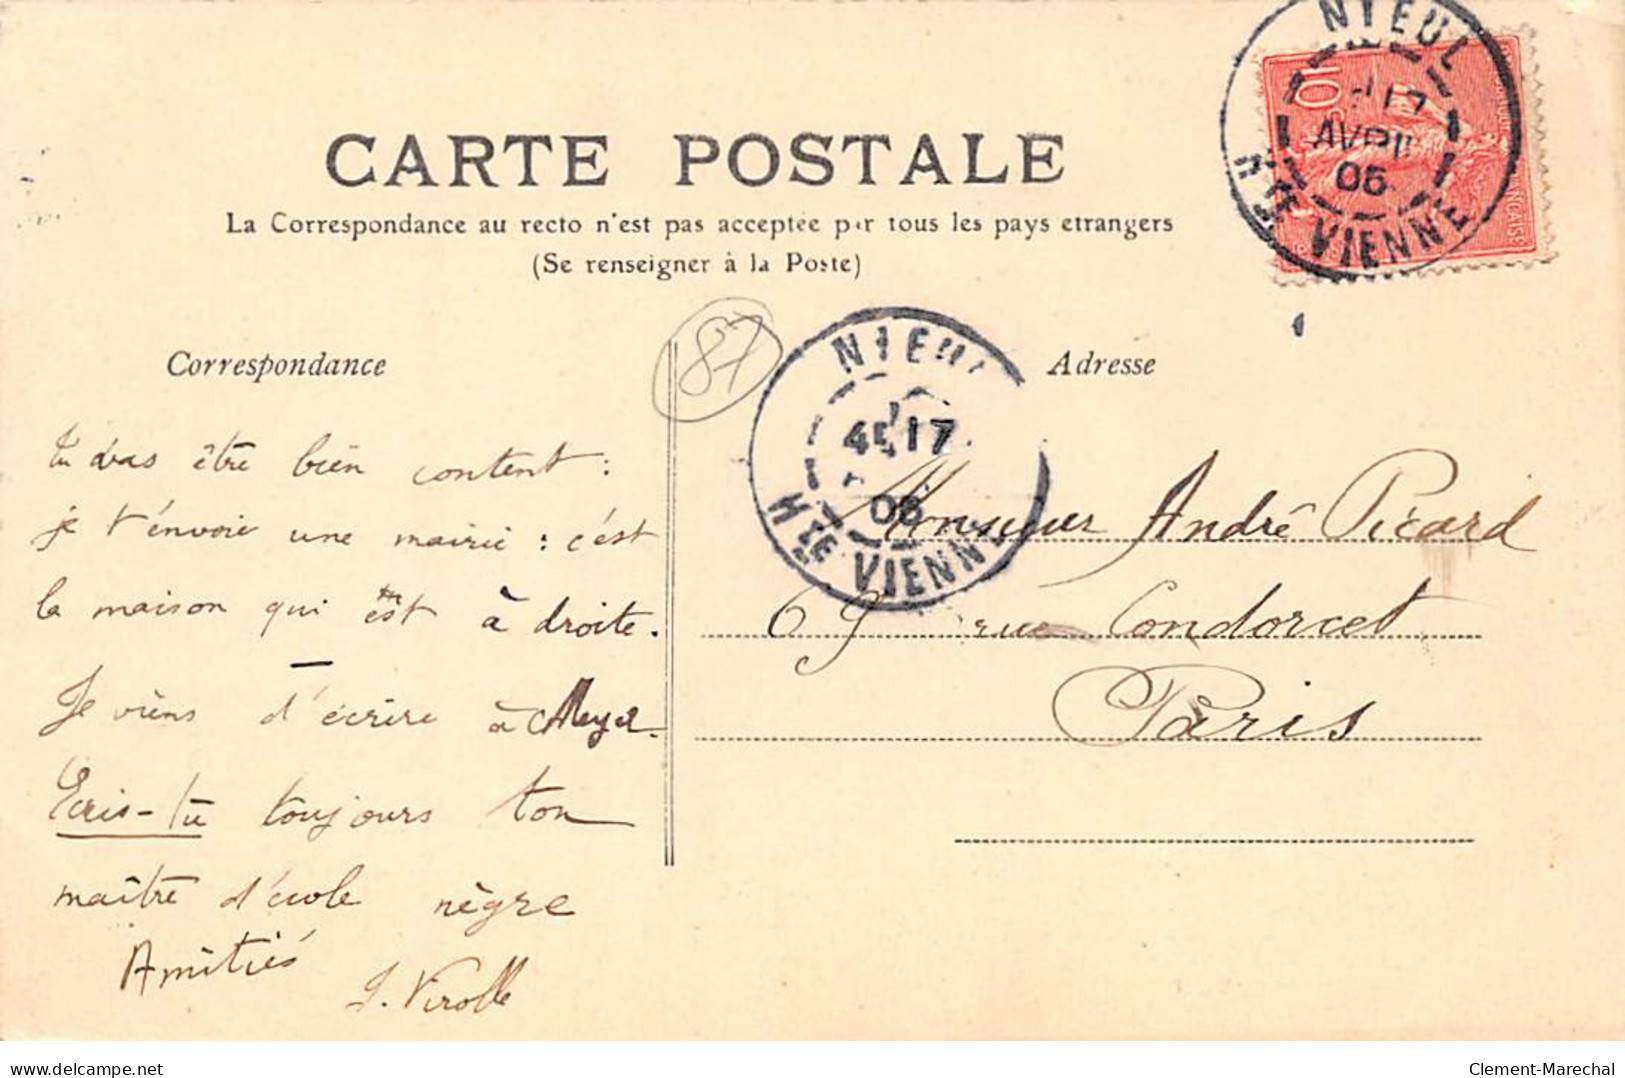 CARTE POSTALE
La Correspondance au recto n'est pas acceptée par tous les pays etrangers
(Se renseigner à la Poste)
NIEUL
17
AVRIL
05
Hte VIENNE
10
87
Correspondance
Tu dvas être bien content :
je t'envoie une mairie : c'est
la maison qui est à droite.
Je viens d'écrire à Meyer.
Ecris-tu toujours ton
maître d'école nègre
Amitiés
J. Virolle
NIEUL
17
Hte VIENNE
Adresse
Monsieur André Picard
69 rue Condorcet
Paris
delcampe.net
Clement-Marechal